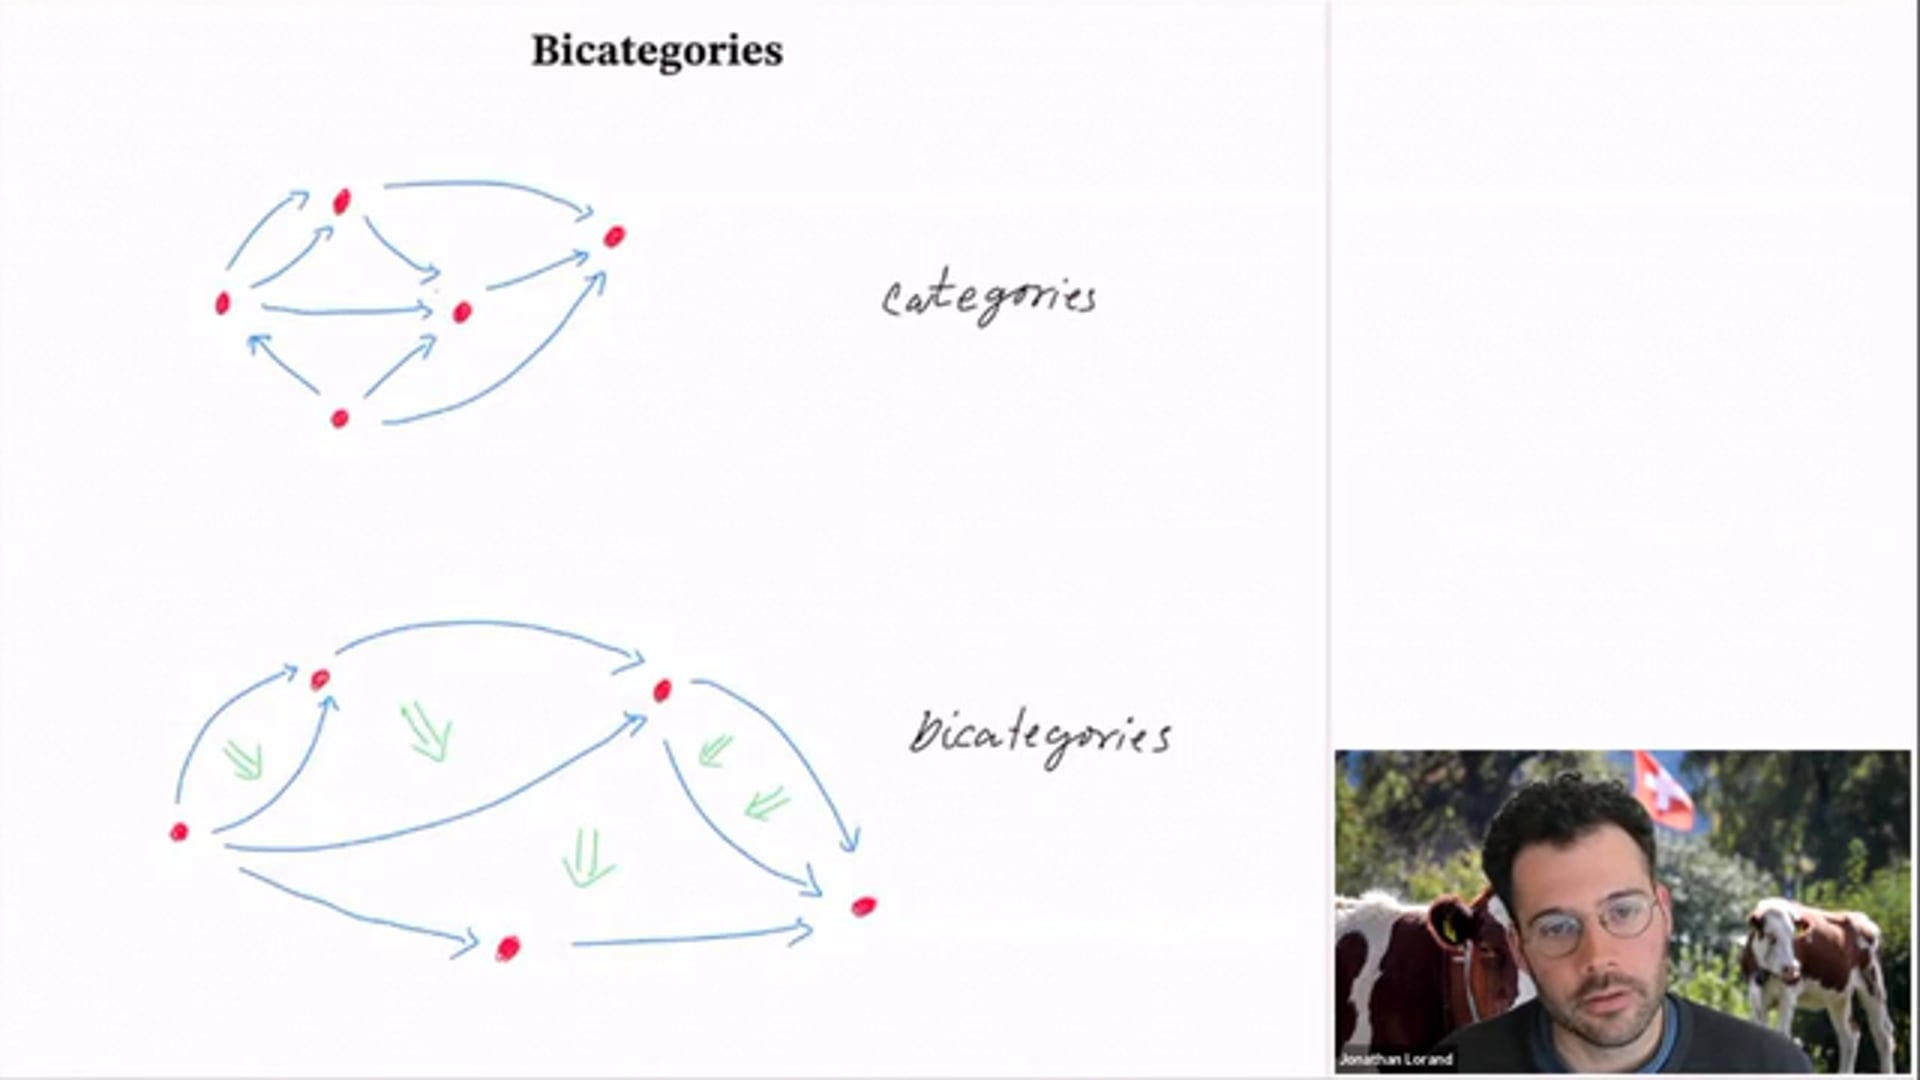 Bicategories
categories
bicategories
Jonathan Lorand